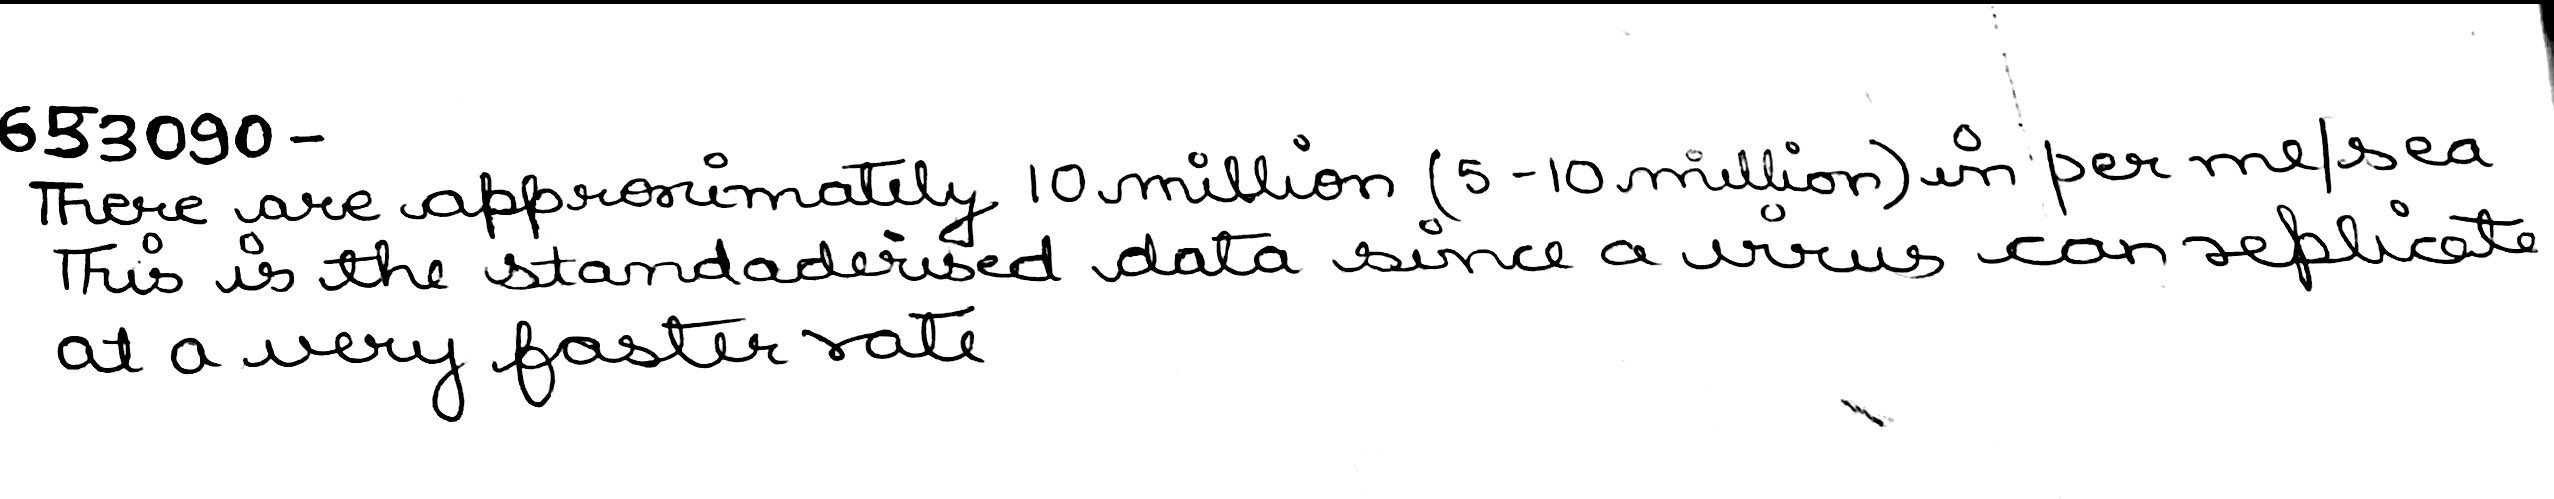 653090-
There are approximately 10 million (5-10 million) in per ml/sea
This is the standaderised data since a virus can replicate
at a very faster rate